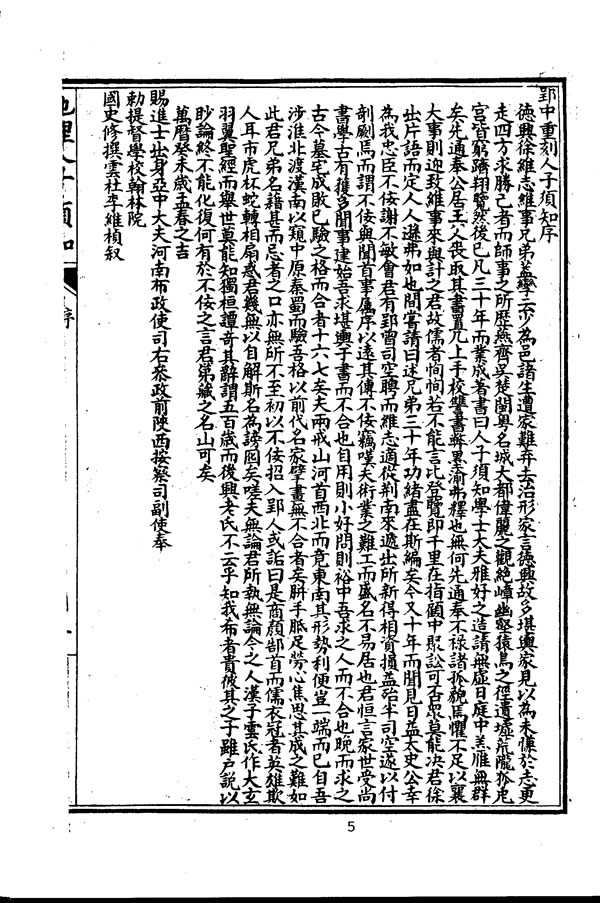 郢中重刻人子須知序
德興徐維志維事兄弟蓋學云少為邑諸生遭家難弃去治形家言德興故多堪輿家見以為未慊於志更
走四方求勝己者而師事之所歷燕齊吳楚閩粵名城大都偉麗之觀絕嶂幽壑猿鳥之徑遺墟荒隴狐兔
宮皆窮躋翔覽然後已凡三十年而業成著書曰人子須知學士大夫雅好之造請無虛日庭中羔雁無群
矣先通奉公居王人喪取其書置几上手校讐書幹里渝弗釋也無何先通奉不祿諸孤貌焉懼不足以襄
大事則迎致維事來與計之君故儒者恂恂若不能言比登覽即千里在指顧中聚訟可否眾莫能決君徐
出片語而定人人遜弗如也間嘗請曰述兄弟三十年功緒盡在斯編矣今又十年而聞見日益太史公幸
為我忠臣不佞謝不敏會君有郢曾司空聘而維志適從荆南來遞出所新得相資損益殆半司空遂以付
剞劂焉而謂不佞與聞首事屬序以遠其傳不佞竊嘆夫術業之難工而盛名不易居也君恒言家世受尚
書學古有獲多聞事建始吾求堪輿于書而不合也自用則小好問則裕中吾求之人而不合也晚而求之
古今墓宅成敗已驗之格而合者十六七矣夫兩戒山河首西北而竟東南其形勢利便豈一端而已自吾
涉淮北渡漢南以窺中原秦蜀而驗吾格以前代名家擘畫無不合者矣胼手胝足勞心焦思其成之難如
此君兄弟名藉甚而忌者之口亦無所不至初以不佞招入郢人或詬曰是商顏郜首而儒衣冠者英雄欺
人耳市虎杯蛇轉相扇惑君幾無以自解斯名為謗囮矣嗟夫無論君所執無論今之人漢子雲氏作大玄
羽翼聖經而舉世莫能知獨桓譚奇其辭謂五百歲而後興老氏不云乎知我希者貴彼其之子雖戶說以
眇論終不能化復何有於不佞之言君弟藏之名山可矣
萬曆癸未歲孟春之吉
賜進士出身亞中大夫河南布政使司右叅政前陝西按察司副使奉
勅提督學校翰林院
國史修撰雲杜李維楨叙
地理人子須知
序
5